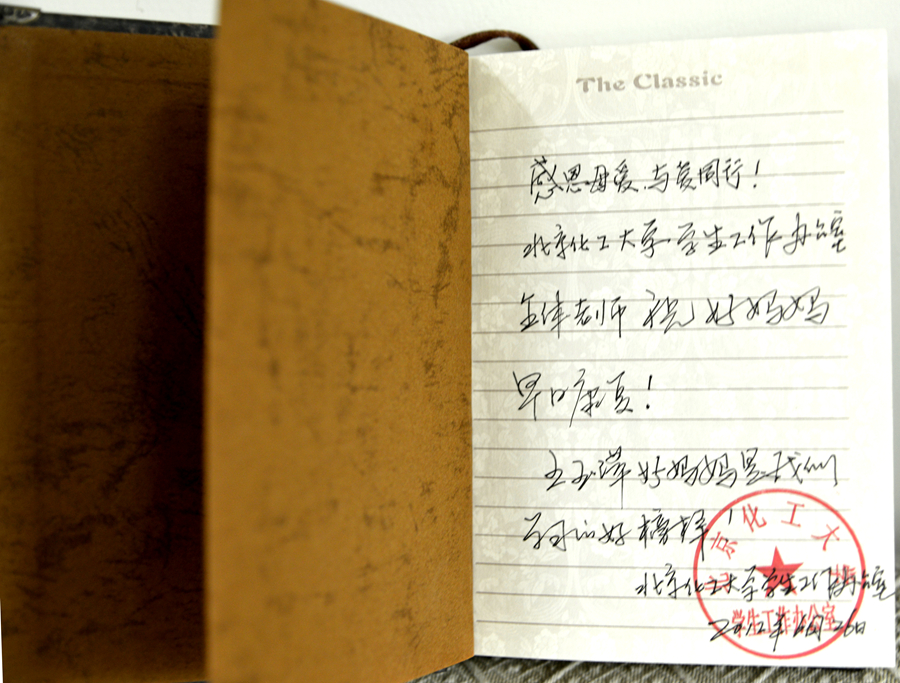 The Classic
感恩母爱 与爱同行!
北京化工大学学生工作办公室
全体老师 祝 好妈妈
早日康复!
王玉萍好妈妈是我们
学习的好榜样!
北京化工大学学生工作办公室
2012年6月26日
北京化工大学
学生工作办公室